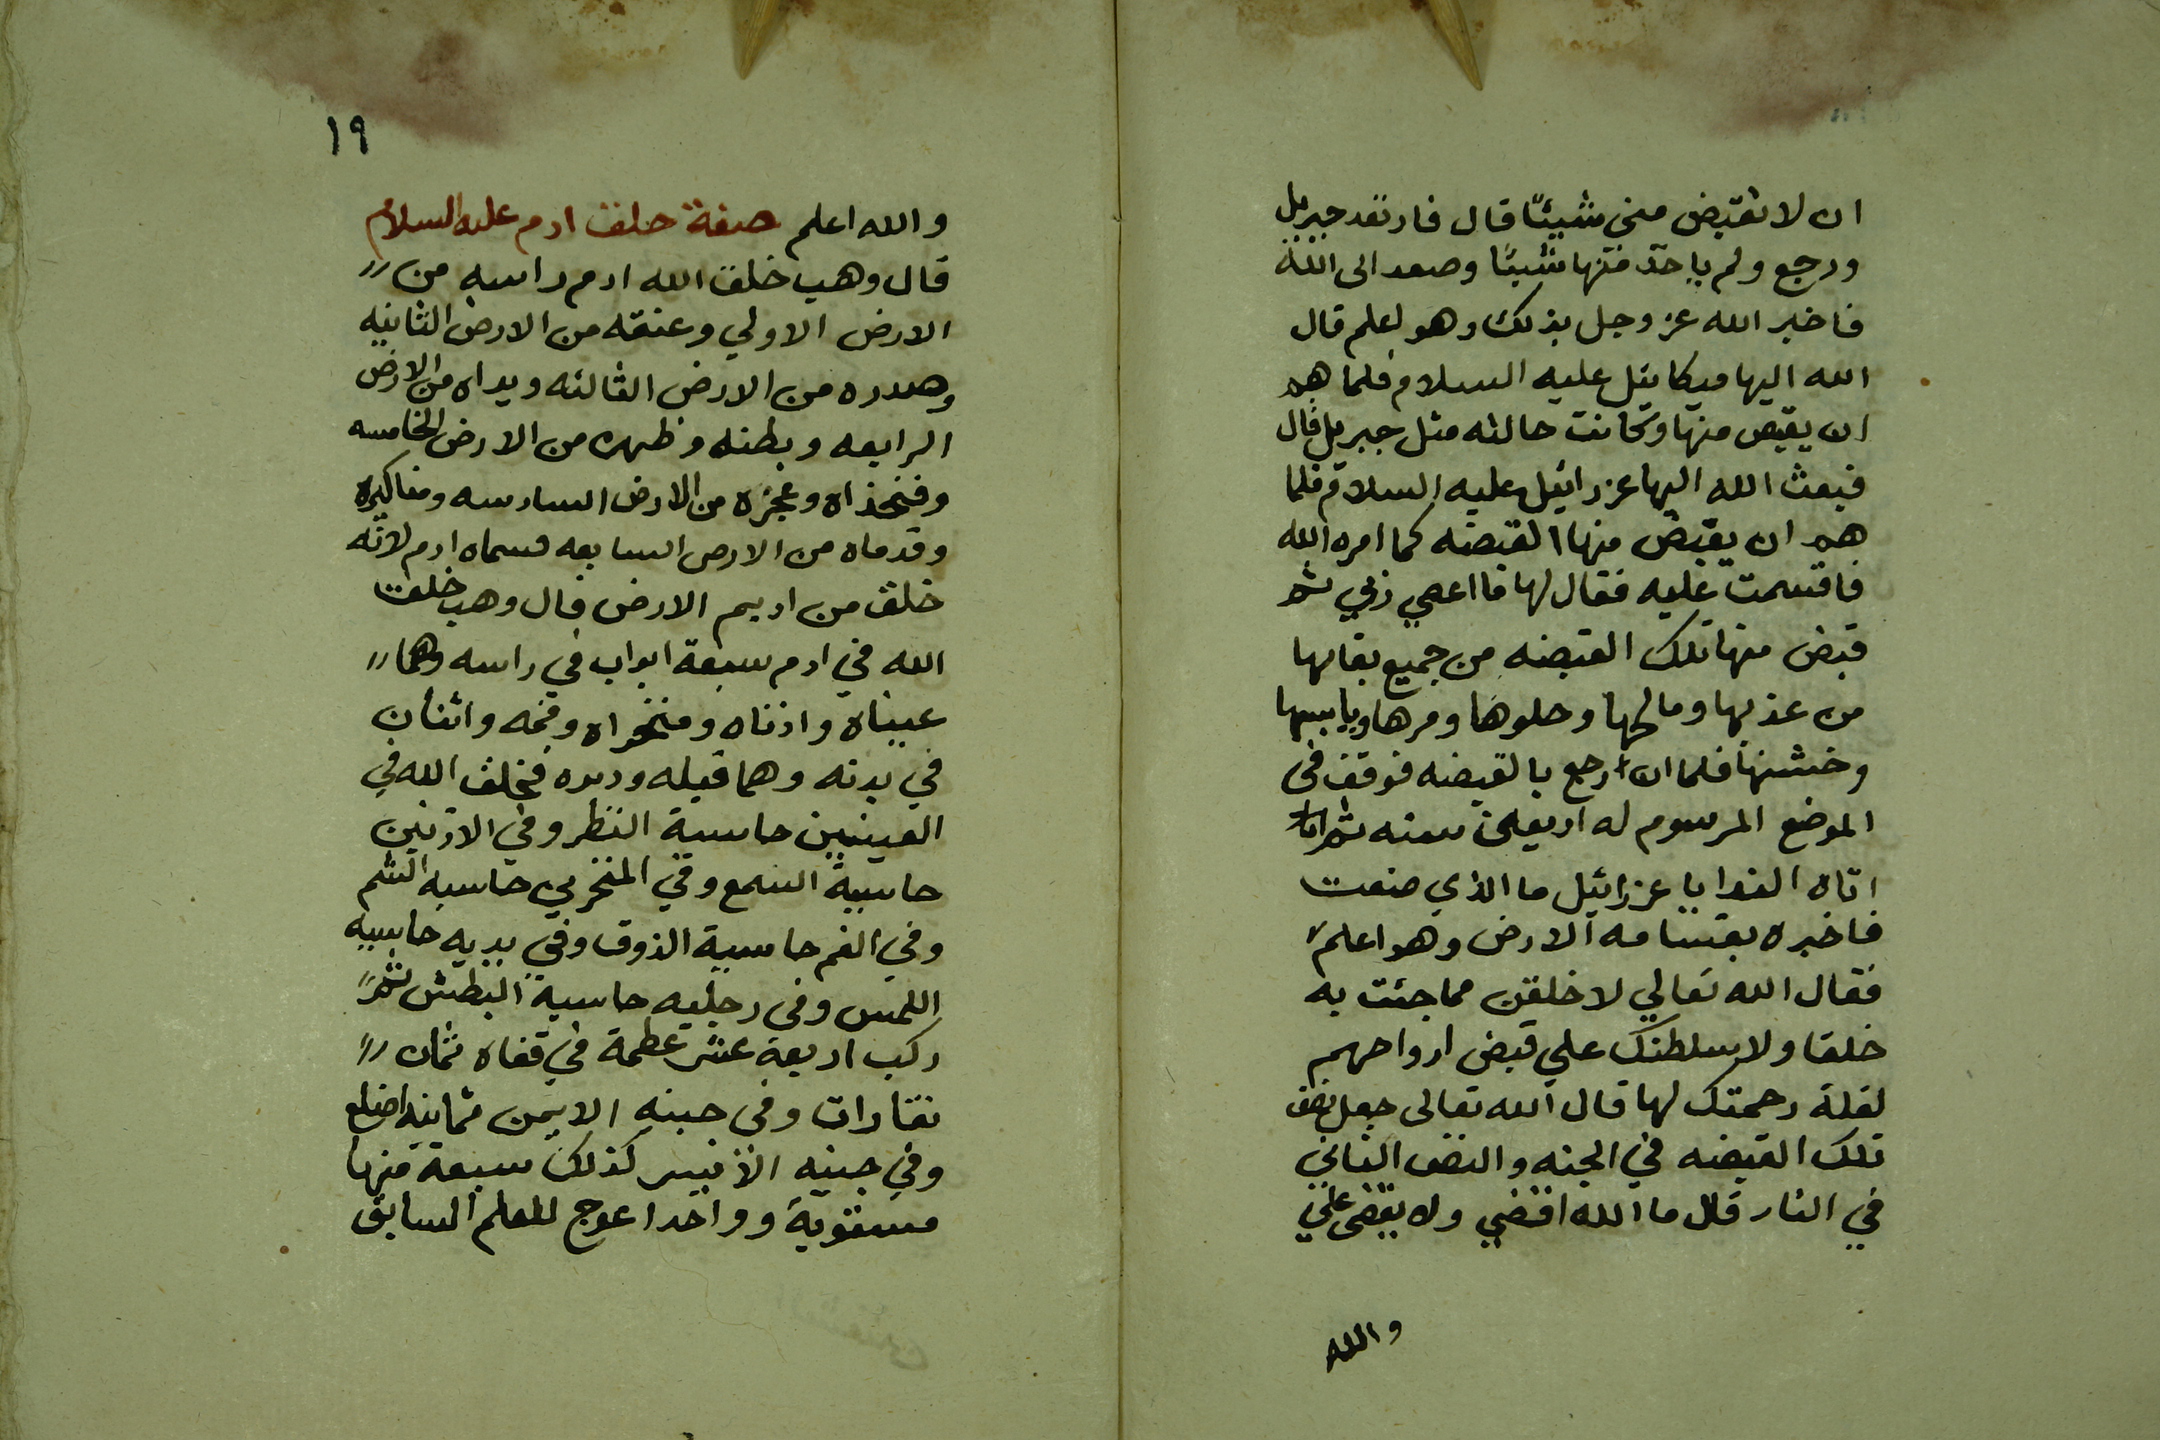 ان لا تقبض منى شيئا قال فارتعد جبريل
ورجع ولم ياخد منها شيئا وصعد الى الله
فاخبر الله عز وجل بذلك وهو اعلم قال
الله اليها ميكائيل عليه السلام فلما هم
ان يقبض منها وكانت حالته مثل جبريل قال
فبعث الله اليها عزرائيل عليه السلام فلما
هم ان يقبض منها القبضه كما امره الله
فاقسمت عليه فقال لها ما اعصي ربي ثم
قبض منها تلك القبضه من جميع بقاعها
من عذبها ومالحها وحلوها ومرها ويابسها
وخشنها فلما ان رجع بالقبضه فوقف فى
الموضع المرسوم له اربعين سنه ثم
اتاه الندا يا عزرائيل ما الذي صنعت
فاخبره بقسامه الارض وهو اعلم
فقال الله تعالي لاخلقن مما جئت به
خلقا ولاسلطنك علي قبض ارواحهم
لقلة رحمتك لها قال الله تعالى جعل نصف
تلك القبضه في الجنه والنصف الثاني
في النار قال ما الله اقضي ولا يقضى علي
والله
١٩
والله اعلم صفة خلق ادم عليه السلام
قال وهب خلق الله ادم راسه من
الارض الاولي وعنقه من الارض الثانيه
وصدره من الارض الثالثه ويداه من الارض
الرابعه وبطنه وظهره من الارض الخامسه
وفخذاه وعجزه من الارض السادسه
وقدماه من الارض السابعه فسماه ادم لانه
خلق من اديم الارض قال وهب خلق
الله في ادم سبعة ابواب في راسه وهما
عيناه واذناه ومنخراه وفمه واثنان
في بدنه وهما قبله ودبره فخلق الله في
العينين حاسة النظر وفي الاذنين
حاسة السمع وفي المنخرين حاسه الشم
وفي الفم حاسة الذوق وفي يديه حاسه
اللمس وفى رجليه حاسة البطش ثم
ركب اربعة عشر عظمة في قفاه ثمان
نقارات وفى جبنه الايمن ثمانيه اضلع
وفي جبنه الايسر كذلك سبعة منها
مستوية وواحدا عوج للعلم السابق